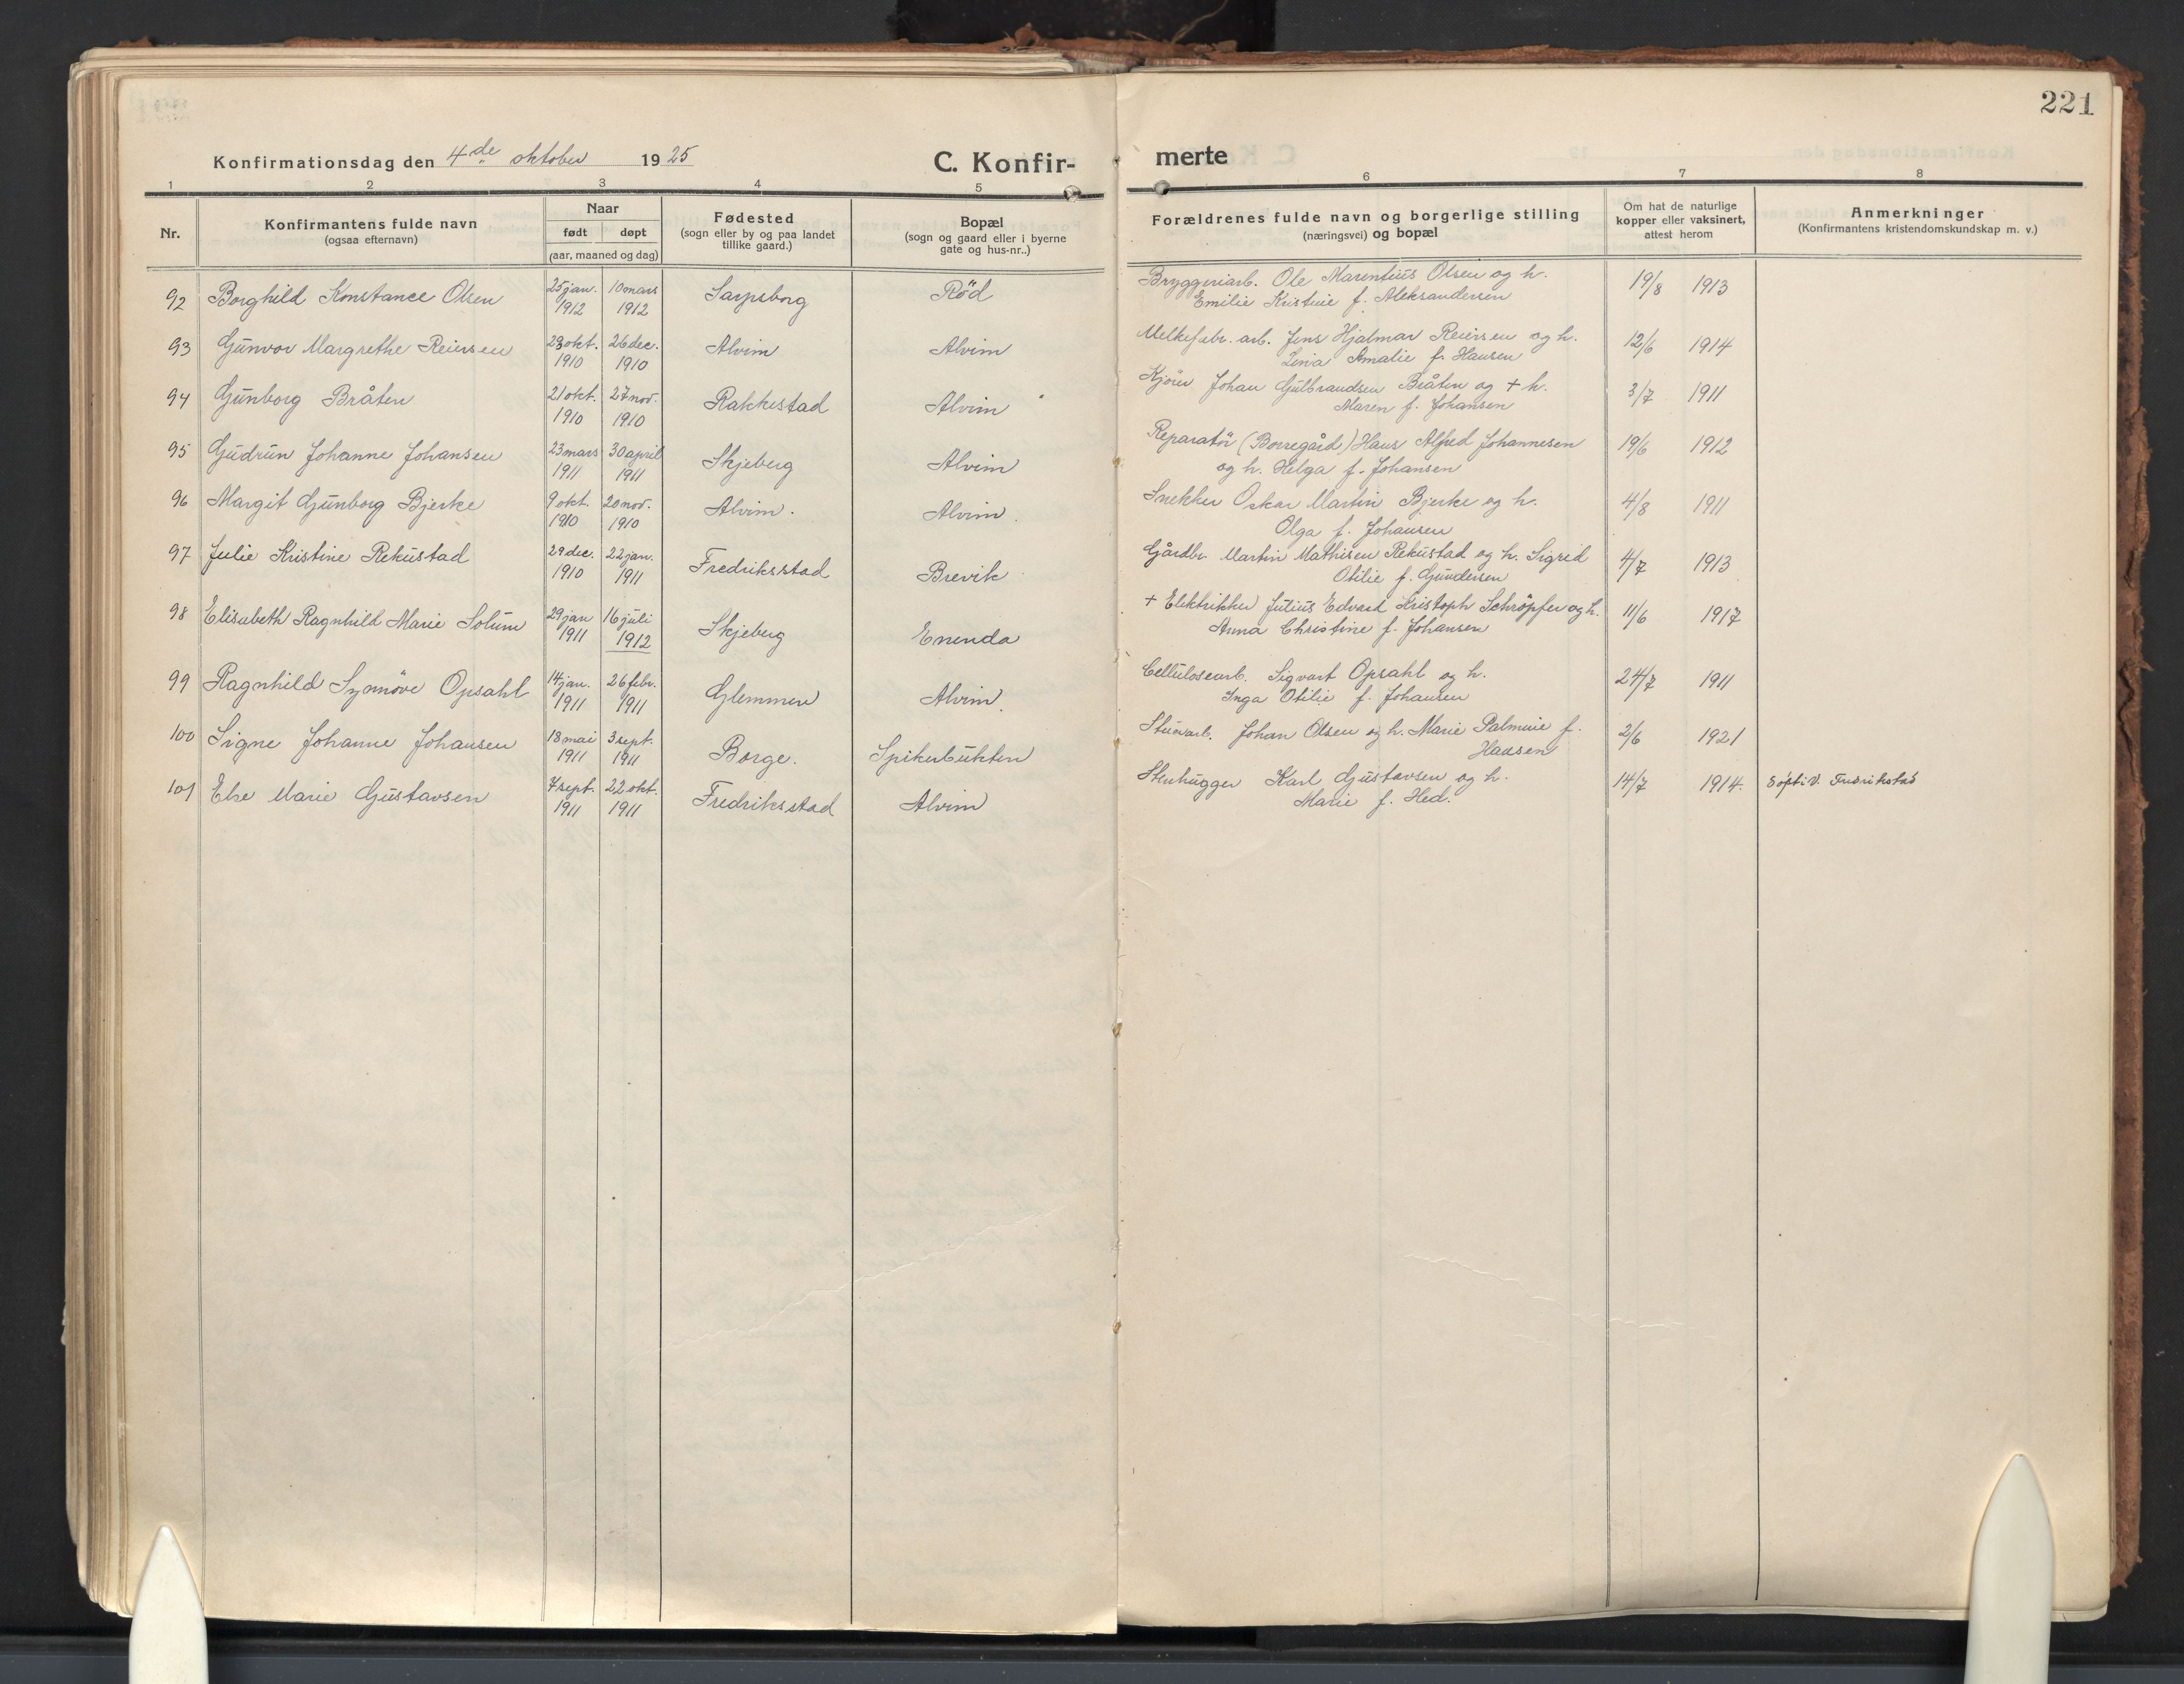 221
Konfirmationsdag den 4de oktober 1925 C. Konfir- merte
1 2 3 4 5 6 7 8
Nr. Konfirmantens fulde navn (ogsaa efternavn) Naar født døpt (aar, maaned og dag) Fødested (sogn eller by og paa landet tillike gaard.) Bopæl (sogn og gaard eller i byerne gate og hus-nr..) Forældrenes fulde navn og borgerlige stilling (næringsvei) og bopæl Om hat de naturlige kopper eller vaksinert, attest herom Anmerkninger (Konfirmantens kristendomskundskap m. v.)
92 Borghild Konstance Olsen 25 jan. 1912 10 mars 1912 Sarpsborg Röd Bryggeriarb. Ole Marentius Olsen og h. Emilie Kristine f. Aleksandersen 19/8 1913
93 Gunvor Margrethe Reiersen 23 okt. 1910 26 dec. 1910 Alvim Alvim Melkefabr. arb. Jens Hjalmar Reiersen og h. Lina Amalie f. Hansen 12/6 1914
94 Gunborg Bråten 21 okt. 1910 27 nov. 1910 Rakkestad Alvim Kjörer Johan Gulbrandsen Bråten og + h. Maren f. Johansen 3/7 1911
95 Gudrun Johanne Johansen 23 mars 1911 30 april 1911 Skjeberg Alvim Reparatör (Borregård) Hans Alfred Johannesen og h. Helga f. Johansen 19/6 1912
96 Margit Gunborg Bjerke 9 okt. 1910 20 nov. 1910 Alvim. Alvim. Snekker Oskar Martin Bjerke og h. Olga f. Johansen 4/8 1911
97 Julie Kristine Rekustad 29 dec. 1910 22 jan. 1911 Fredriksstad Brevik Gårdbr. Martin Mathisen Rekustad og h. Sigrid Otilie f. Gundersen 4/7 1913
98 Elisabeth Ragnhild Marie Solum 29 jan 1911 16 juli 1912 Skjeberg Enenda + Elektriker Julius Edvard Kristoph Schröpfer og h. Anna Christine f. Johansen 11/6 1917
99 Ragnhild Synnöve Opsahl 14 jan. 1911 26 febr. 1911 Glemmen Alvim. Cellulosearb. Sigvart Opsahl og h. Inga Otilie f. Johansen 24/7 1911
100 Signe Johanne Johansen 18 mai 1911 3 sept. 1911 Borge. Spikerbukten Johan Olsen og h. Marie Palmine f. Hansen 2/6 1921
101 Else Marie Gustavsen 7 sept. 1911 22 okt. 1911 Fredriksstad Alvim Stenhugger Karl Gustavsen og h. Marie f. Hed. 14/7 1914. Fredrikstad